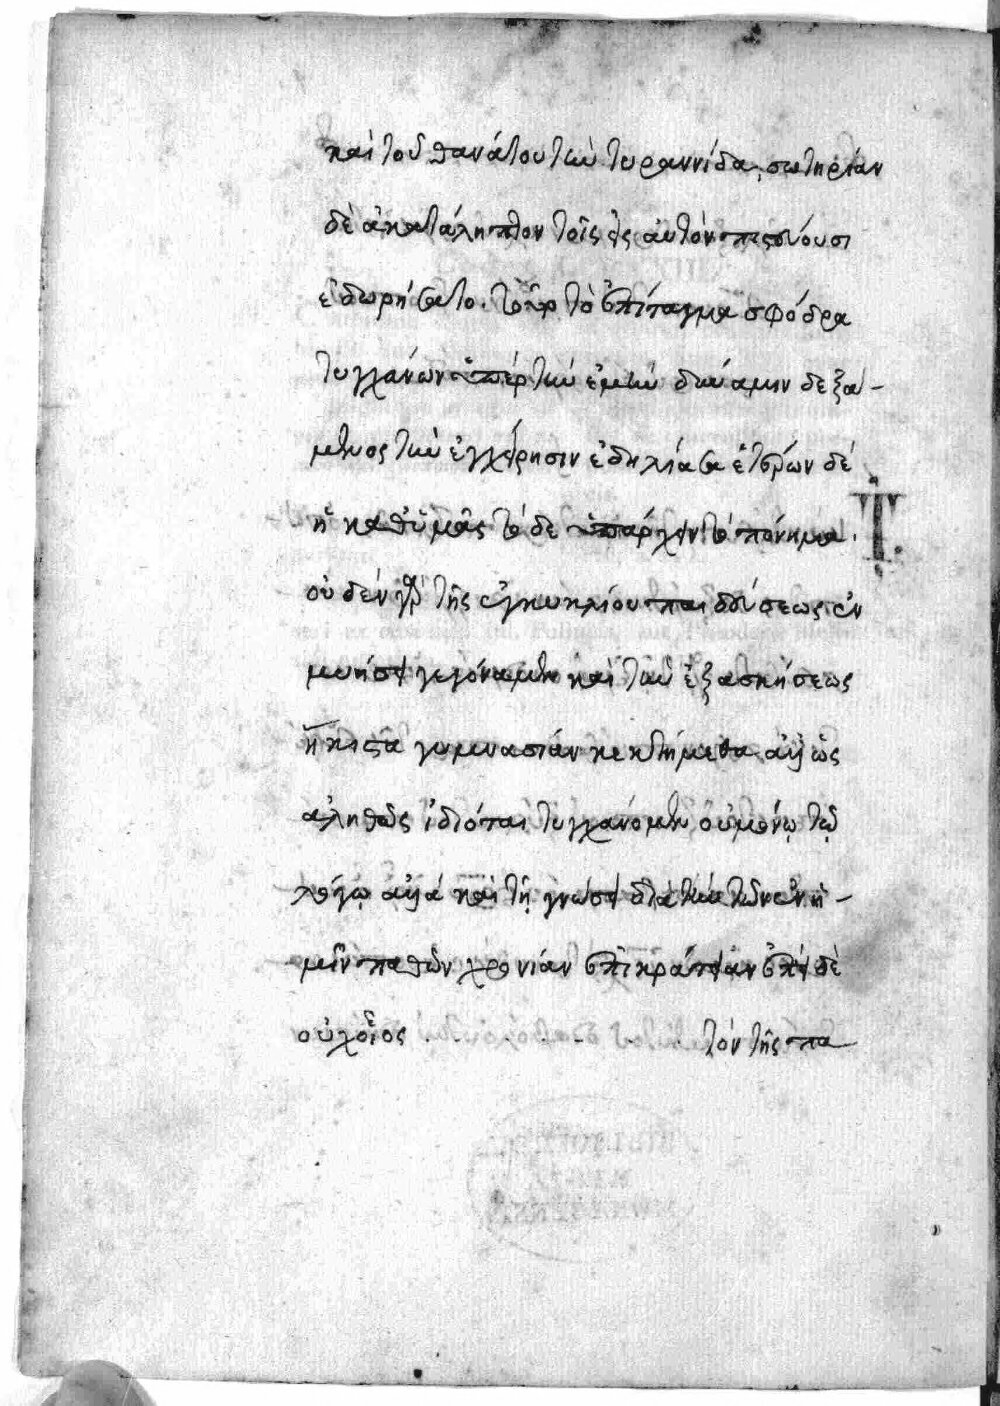 καὶ τοῦ θανάτου τὴν τυραννίδα, σωτηρίαν
δὲ ἀκατάληπτον τοῖς εἰς αὐτὸν πιστεύουσι
ἐδωρήσατο. τὸ ἐπίταγμα σφόδρα
τυγχάνων ὑπέρ τὴν ἐμὴν δύναμιν δεξά-
μενος τὴν ἐγχείρησιν ἐδηλίασα ἑτέρων δέ
ἢ καθ' ὑμᾶς τόδε ὑπάρχειν τὸ πόνημα.
οὐδέν γὰρ τῆς ἐγκυκλίου παιδεύσεως ἐν
μυήσει γεγόναμεν καὶ τῆς ἐξασκήσεως
ἥκιστα γυμνασίαν κεκτήμεθα ἀλλ' ὡς
ἀληθῶς ἰδιόται τυγχάνομεν οὐ μόνῳ τῷ
λόγῳ ἀλλὰ καὶ τῇ γνώσει διὰ τὴν τῶν ἐν ἡ-
μῖν παθῶν χρονίαν ἐπικράτειαν ἐπεὶ δὲ
οὐχ οἷός τὸν τῆς πα